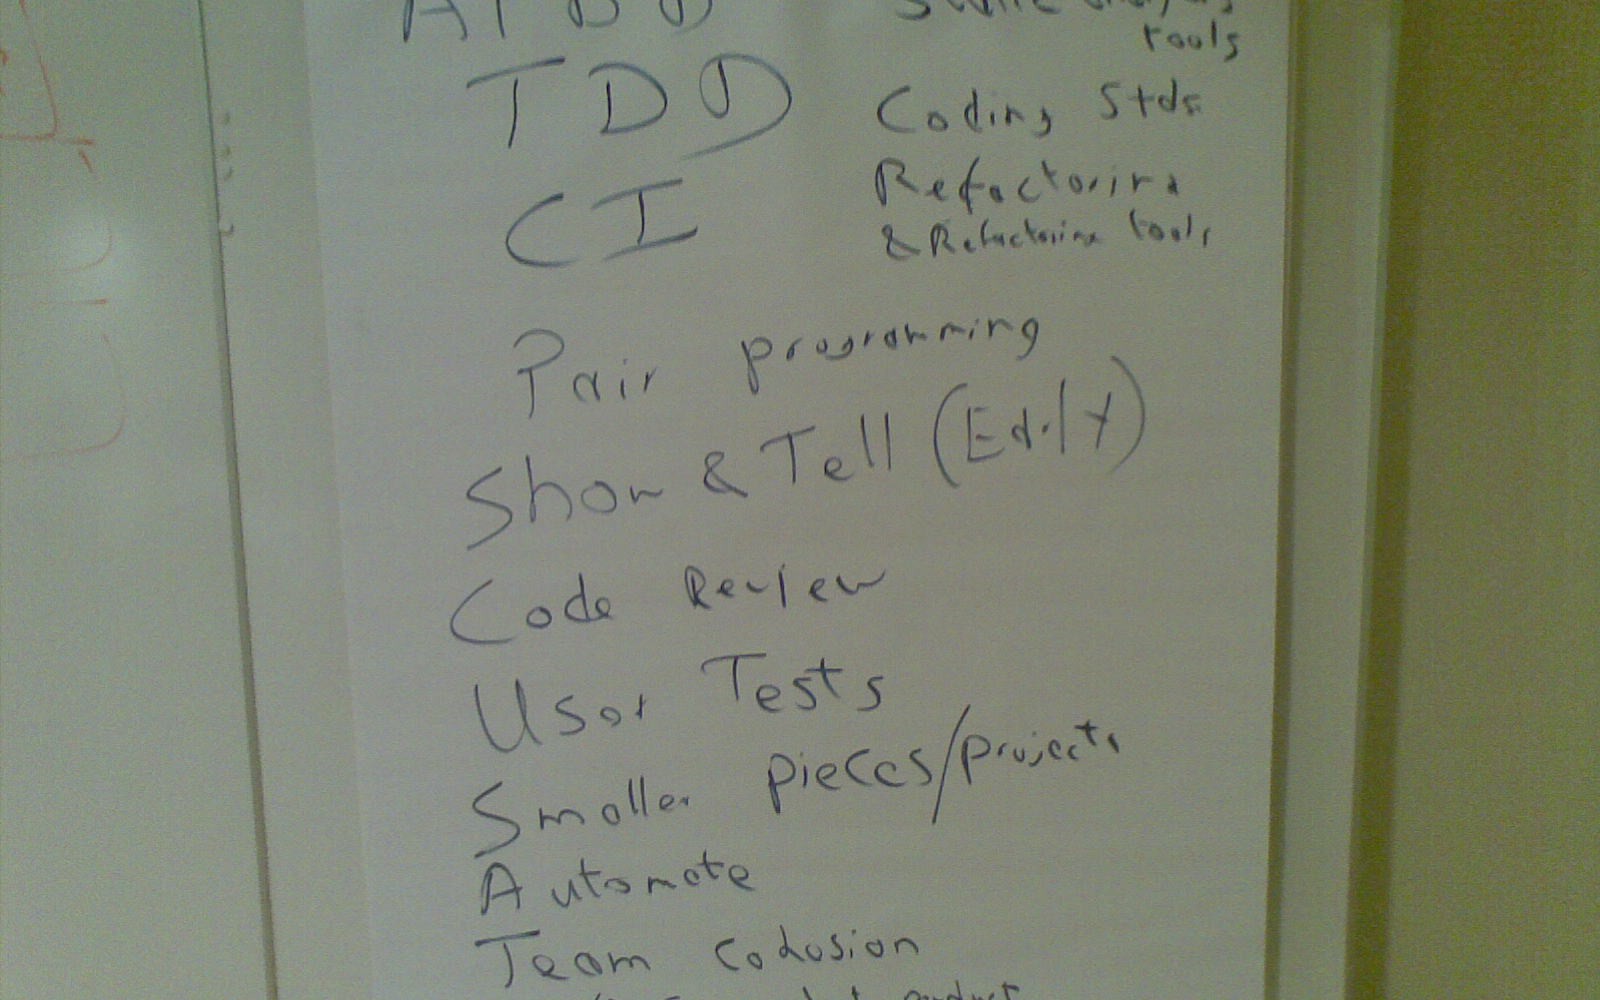 ATDD
tools
TDD
Coding Stds
CI
Refactoring
& Refactoring tools
Pair programming
Show & Tell (Early)
Code Review
User Tests
Smaller pieces/projects
Automate
Team Cohosion
product